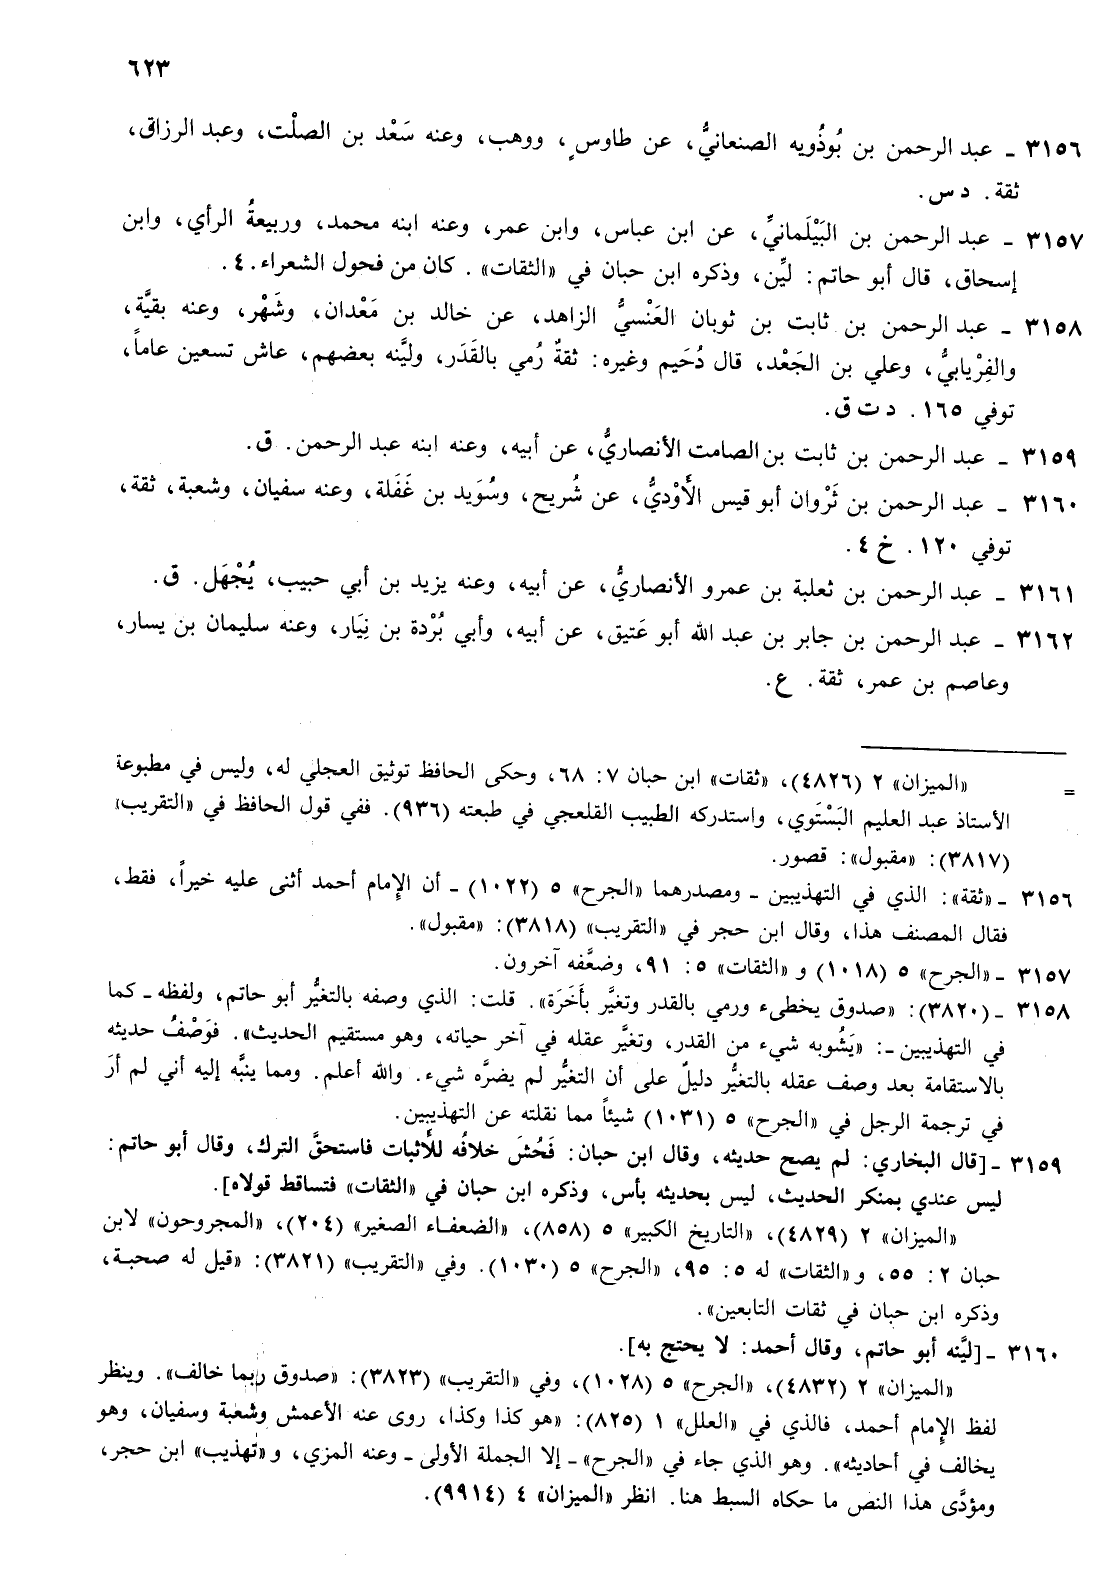 ٦٢٣
٣١٥٦ ـ عبد الرحمن بن بُوذُويه الصنعانيُّ، عن طاوسٍ، ووهب، وعنه سَعْد بن الصلْت، وعبد الرزاق،
ثقة. د س.
٣١٥٧ ـ عبد الرحمن بن البَيْلَمانيِّ، عن ابن عباس، وابن عمر، وعنه ابنه محمد، وربيعةُ الرأي، وابن
إسحاق، قال أبو حاتم: ليِّن، وذكره ابن حبان في «الثقات». كان من فحول الشعراء. ٤.
٣١٥٨ ـ عبد الرحمن بن ثابت بن ثوبان العَنْسيُّ الزاهد، عن خالد بن مَعْدان، وشَهْر، وعنه بقيَّة،
والفِرْيابيُّ، وعلي بن الجَعْد، قال دُحَيم وغيره: ثقةٌ رُمي بالقَدَر، وليَّنه بعضهم، عاش تسعين عاماً،
توفي ١٦٥. د ت ق.
٣١٥٩ ـ عبد الرحمن بن ثابت بن الصامت الأنصاريُّ، عن أبيه، وعنه ابنه عبد الرحمن. ق.
٣١٦٠ ـ عبد الرحمن بن ثَرْوان أبو قيس الأَوْديُّ، عن شُريح، وسُوَيد بن غَفَلة، وعنه سفيان، وشعبة، ثقة،
توفي ١٢٠. خ ٤.
٣١٦١ ـ عبد الرحمن بن ثعلبة بن عمرو الأنصاريُّ، عن أبيه، وعنه يزيد بن أبي حبيب، يُجْهَل. ق.
٣١٦٢ ـ عبد الرحمن بن جابر بن عبد الله أبو عَتيق، عن أبيه، وأبي بُرْدة بن نِيَار، وعنه سليمان بن يسار،
وعاصم بن عمر، ثقة. ع.
= «الميزان» ٢ (٤٨٢٦)، «ثقات» ابن حبان ٧: ٦٨، وحكى الحافظ توثيق العجلي له، وليس في مطبوعة
الأستاذ عبد العليم البَسْتَوي، واستدركه الطبيب القلعجي في طبعته (٩٣٦). ففي قول الحافظ في «التقريب»
(٣٨١٧): «مقبول»: قصور.
٣١٥٦ ـ «ثقة»: الذي في التهذيبين ـ ومصدرهما «الجرح» ٥ (١٠٢٢) ـ أن الإمام أحمد أثنى عليه خيراً، فقط،
فقال المصنف هذا، وقال ابن حجر في «التقريب» (٣٨١٨): «مقبول».
٣١٥٧ ـ «الجرح» ٥ (١٠١٨) و «الثقات» ٥: ٩١، وضعَّفه آخرون.
٣١٥٨ ـ (٣٨٢٠): «صدوق يخطىء ورمي بالقدر وتغيَّر بأَخَرَة». قلت: الذي وصفه بالتغيُّر أبو حاتم، ولفظه ـ كما
في التهذيبين ـ: «يَشُوبه شيء من القدر، وتغيَّر عقله في آخر حياته، وهو مستقيم الحديث». فوَصْفُ حديثه
بالاستقامة بعد وصف عقله بالتغيُّر دليلٌ على أن التغيُّر لم يضرَّه شيء. والله أعلم. ومما ينبَّه إليه أني لم أرَ
في ترجمة الرجل في «الجرح» ٥ (١٠٣١) شيئاً مما نقلته عن التهذيبين.
٣١٥٩ ـ [قال البخاري: لم يصح حديثه، وقال ابن حبان: فَحُشَ خلافُه للأثبات فاستحقَّ الترك، وقال أبو حاتم:
ليس عندي بمنكر الحديث، ليس بحديثه بأس، وذكره ابن حبان في «الثقات» فتساقط قولاه].
«الميزان» ٢ (٤٨٢٩)، «التاريخ الكبير» ٥ (٨٥٨)، «الضعفاء الصغير» (٢٠٤)، «المجروحون» لابن
حبان ٢: ٥٥، و «الثقات» له ٥: ٩٥، «الجرح» ٥ (١٠٣٠). وفي «التقريب» (٣٨٢١): «قيل له صحبة،
وذكره ابن حبان في ثقات التابعين».
٣١٦٠ ـ [ليَّنه أبو حاتم، وقال أحمد: لا يحتج به].
«الميزان» ٢ (٤٨٣٢)، «الجرح» ٥ (١٠٢٨)، وفي «التقريب» (٣٨٢٣): «صدوق ربما خالف». وينظر
لفظ الإمام أحمد، فالذي في «العلل» ١ (٨٢٥): «هو كذا وكذا، روى عنه الأعمش وشعبة وسفيان، وهو
يخالف في أحاديثه». وهو الذي جاء في «الجرح» ـ إلا الجملة الأولى ـ وعنه المزي، و «تهذيب» ابن حجر،
ومؤدَّى هذا النص ما حكاه السبط هنا. انظر «الميزان» ٤ (٩٩١٤).